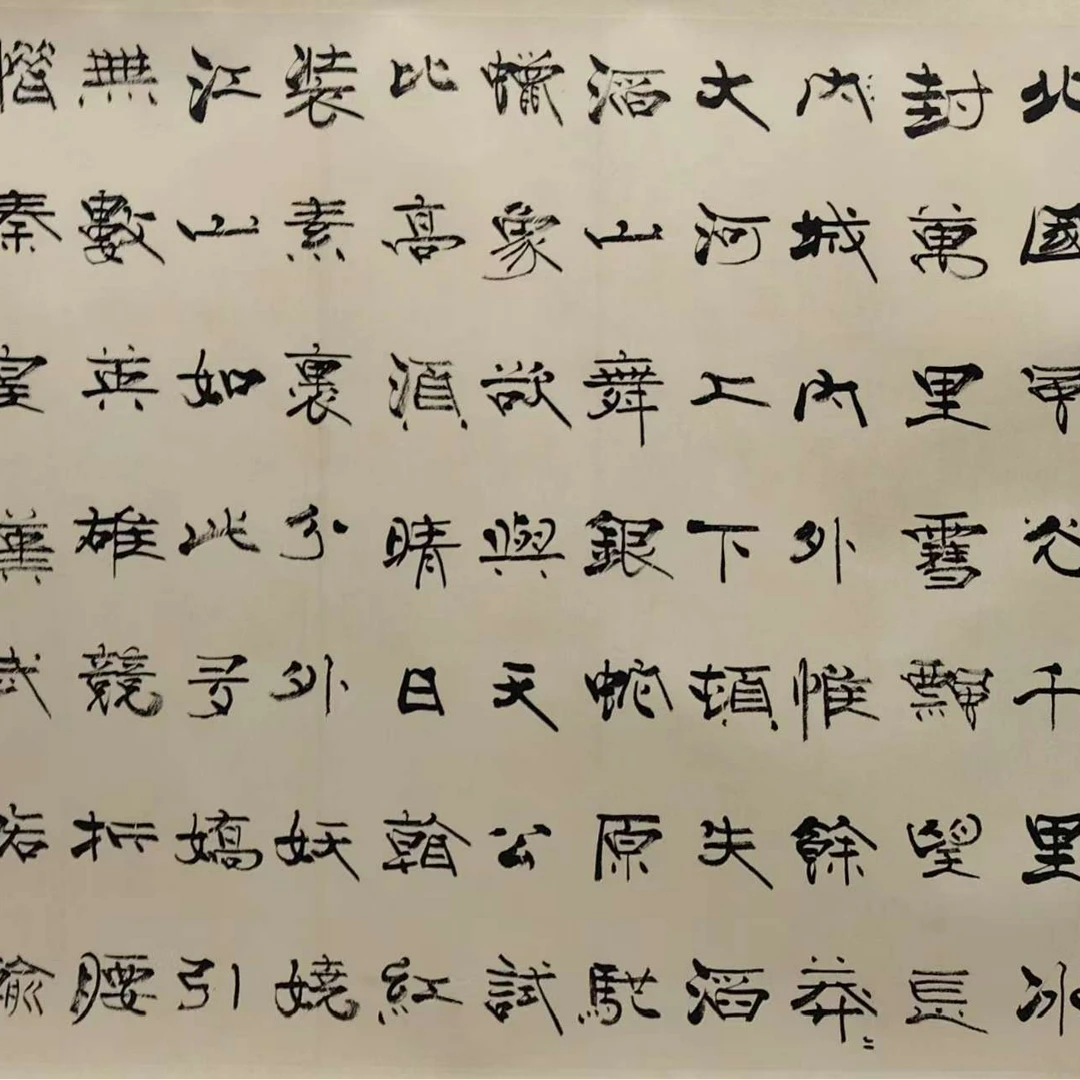 北國風光千里冰
封萬里雪飄望長
內城內外惟餘莽〻
大河上下頓失滔
滔山舞銀蛇原馳
蠟象欲與天公試
比高湏晴日看紅
裝素裹分外妖嬈
江山如此多嬌引
無數英雄競折腰
惜秦皇漢武略輸